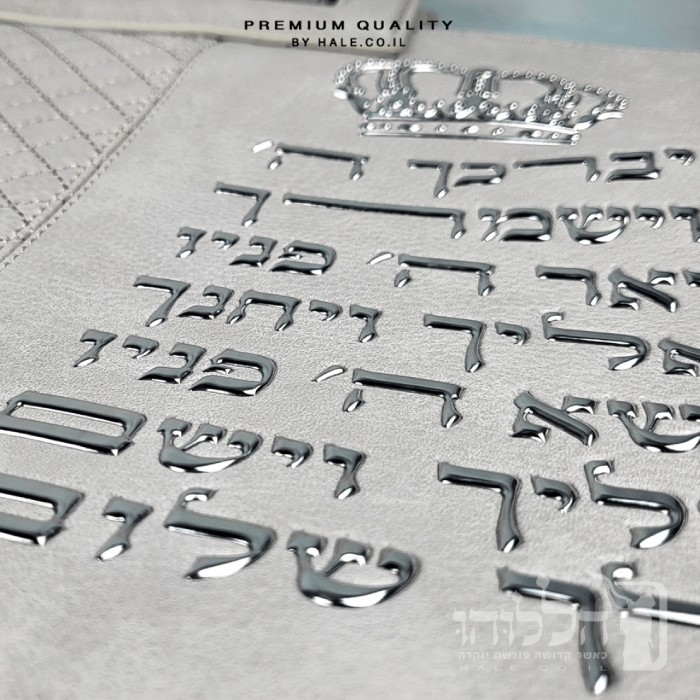 PREMIUM QUALITY
BY HALE.CO.IL
יברכך ה׳
וישמרך
יאר ה׳ פניו
אליך ויחנך
שא ה׳ פניו
ליך וישם
לך שלום
הללוהו
כאשר קדושה פוגשת יוקרה
HALE.CO.IL